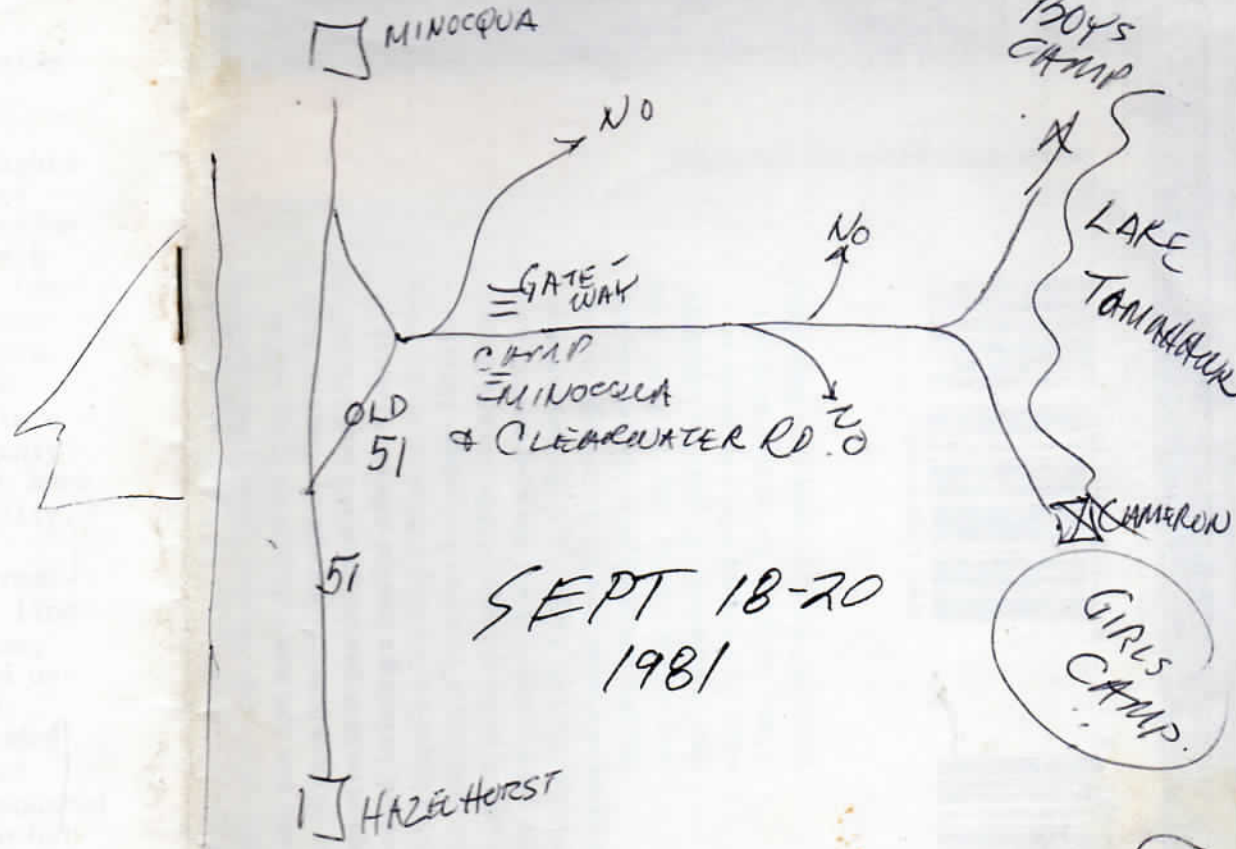 MINOCQUA
BOYS
CAMP
NO
NO
LAKE
TOMAHAWK
GATE-
WAY
CAMP
MINOCQUA
& CLEARWATER RD.
NO
OLD
51
CAMERON
51
SEPT 18-20
1981
GIRLS
CAMP.
HAZELHURST